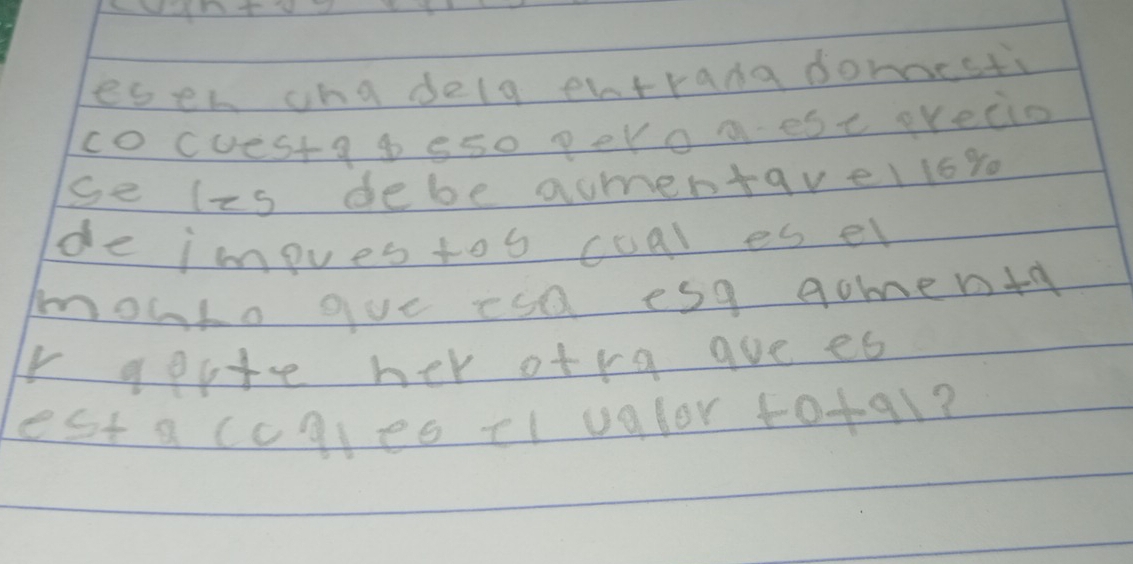 es en una dela entrada domesti
co cuesta $ 550 pero a ese precio
se les debe aumentar el 16%
de impuestos cual es el
monto que esa esa aumenta
r otra que es
esta cual es el valor total?